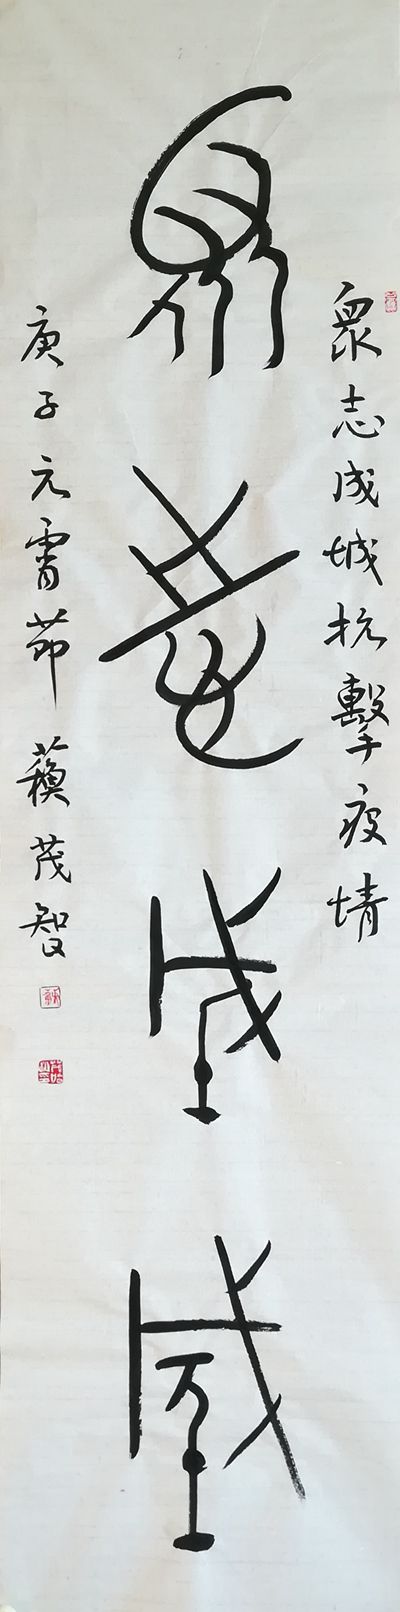 衆志成城抗擊疫情
衆志成城
庚子元宵节 蘓茂智